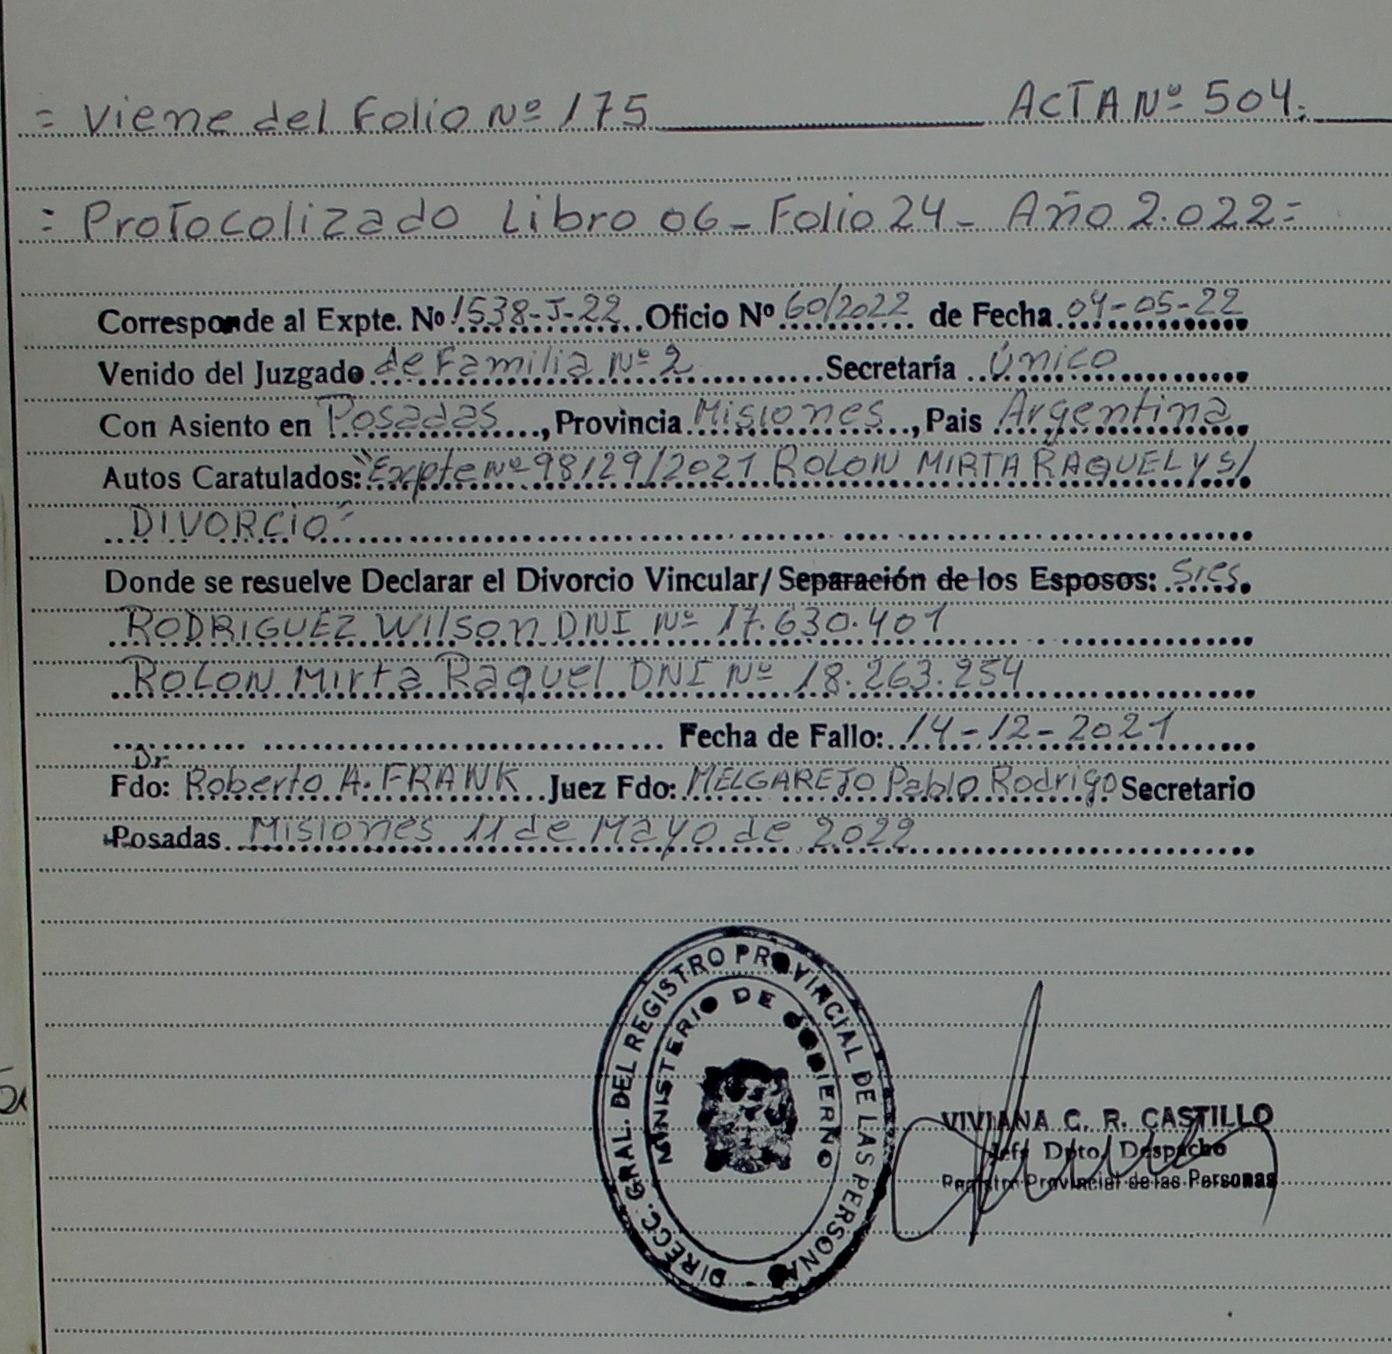 = Viene del Folio Nº 175 ACTA Nº 504.
= Protocolizado Libro 06 - Folio 24 - Año 2.022 =
Corresponde al Expte. Nº 1538-J-22 Oficio Nº 60/2022 de Fecha 04-05-22
Venido del Juzgado de Familia Nº 2 Secretaría Único
Con Asiento en Posadas, Provincia Misiones, Pais Argentina
Autos Caratulados: "Expte Nº 98129/2021 ROLON MIRTA RAQUEL Y S/
DIVORCIO"
Donde se resuelve Declarar el Divorcio Vincular/ Separación de los Esposos: Sres.
RODRIGUEZ Wilson DNI Nº 17.630.401
ROLON Mirta Raquel DNI Nº 18.263.254
Fecha de Fallo: 14-12-2021
Fdo: Dr. Roberto A. FRANK Juez Fdo: MELGAREJO Pablo Rodrigo Secretario
Posadas Misiones 11 de Mayo de 2022
DIRECC. GRAL. DEL REGISTRO PROVINCIAL DE LAS PERSONAS
MINISTERIO DE GOBIERNO
VIVIANA C. R. CASTILLO
Jefe Dpto. Despacho
Registro Provincial de las Personas